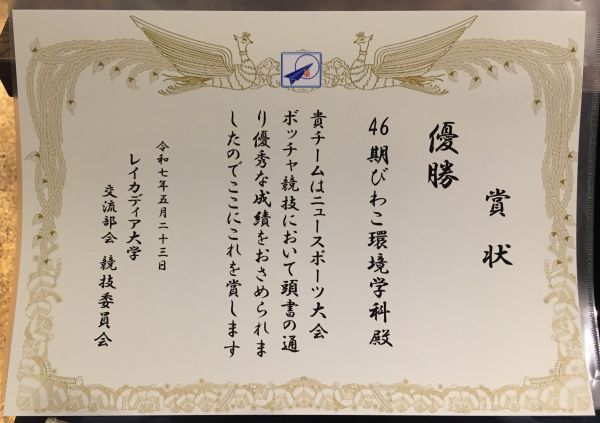 賞状
優勝
46期びわこ環境学科殿
貴チームはニュースポーツ大会
ボッチャ競技において頭書の通
り優秀な成績をおさめられま
したのでここにこれを賞します
令和七年五月二十三日
レイカディア大学
交流部会 競技委員会